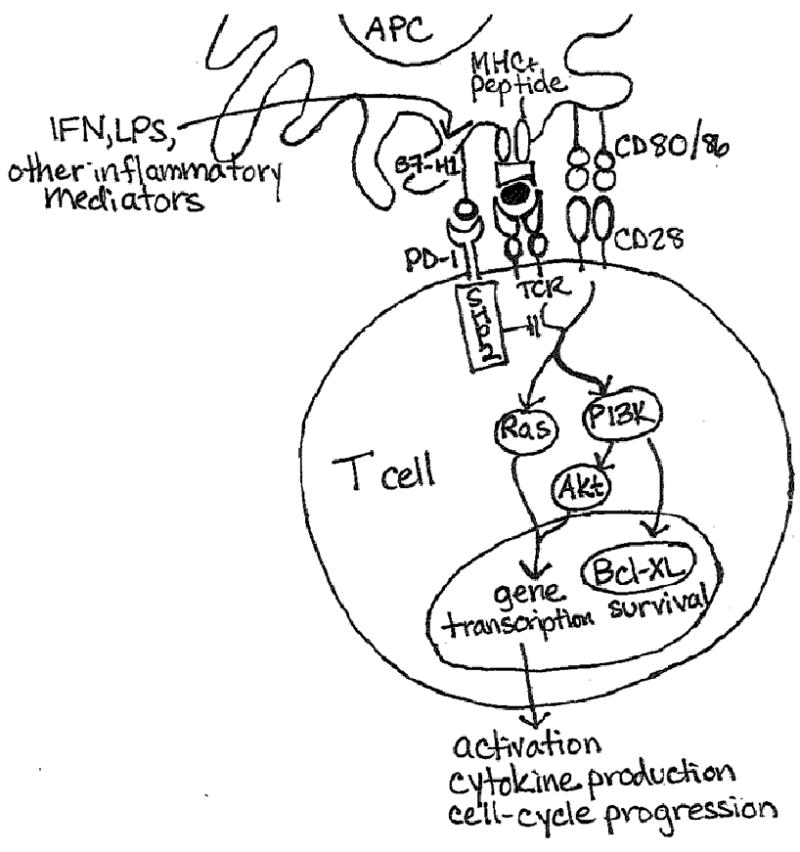 APC
MHC+
peptide
IFN, LPS,
other inflammatory
mediators
B7-H1
CD80/86
PD-1
CD28
TCR
Ras
PI3K
T cell
Akt
Bcl-XL
gene
transcription
survival
activation
cytokine production
cell-cycle progression